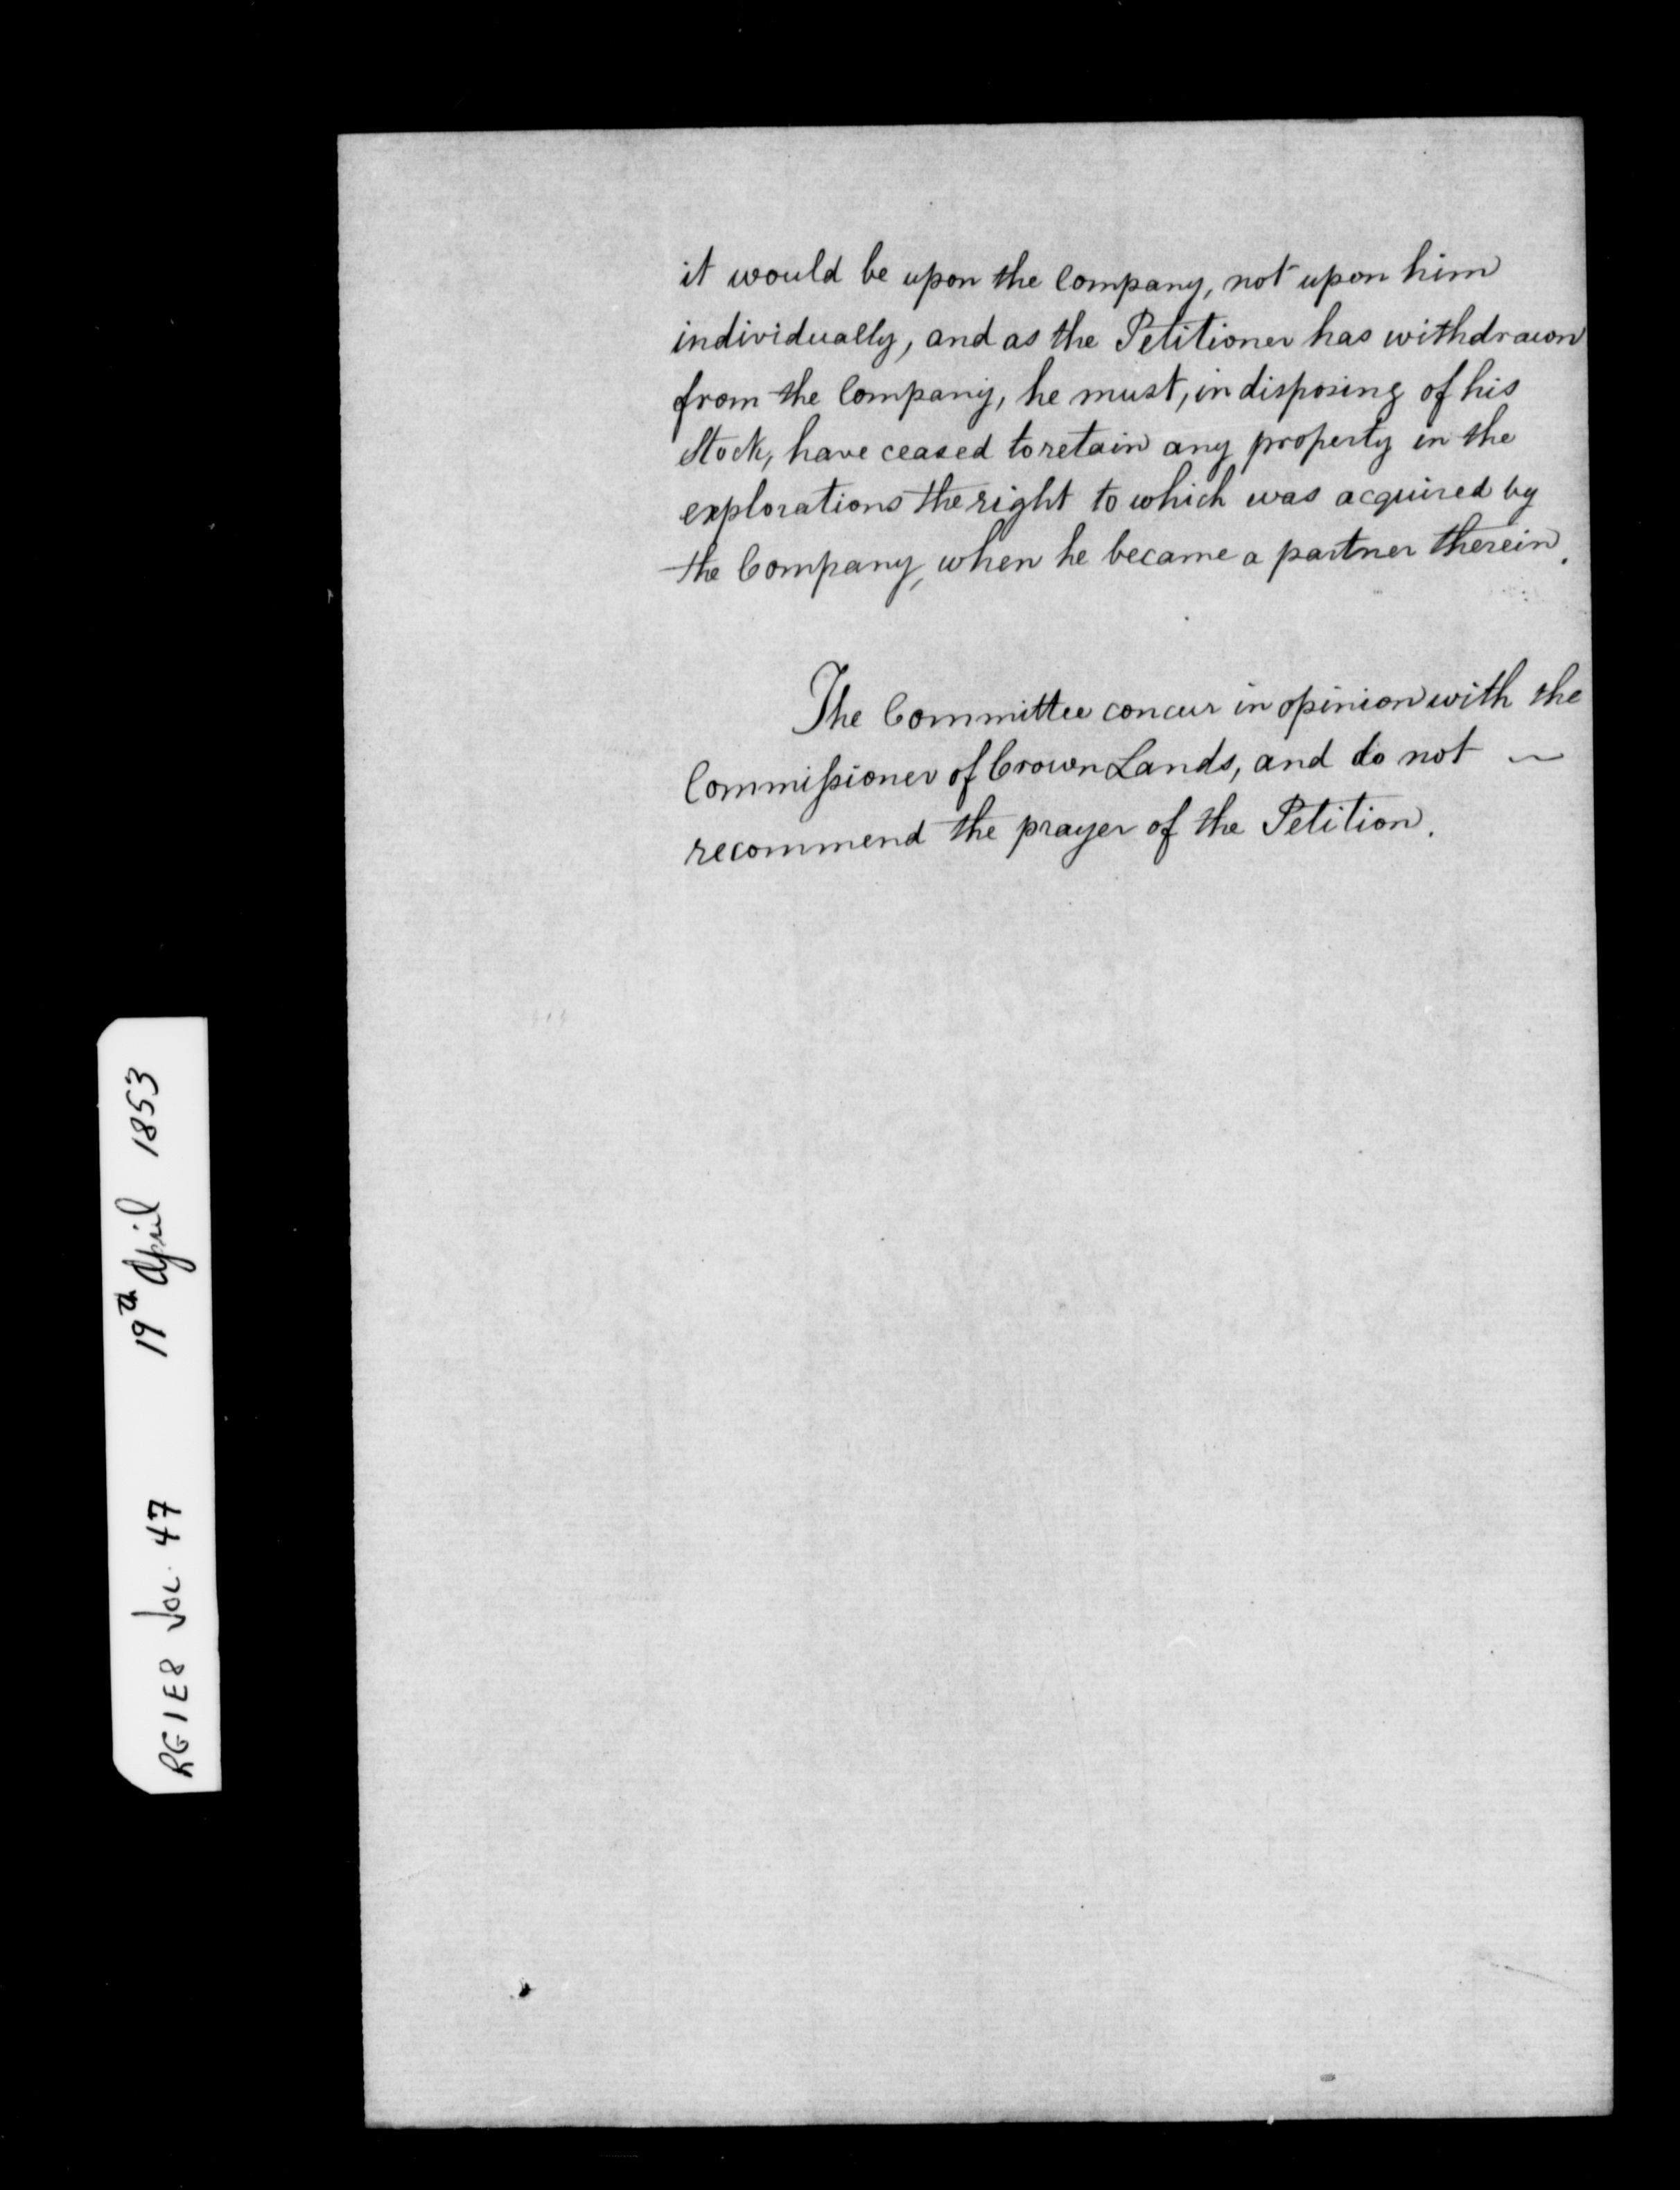 it would be upon the Company, not upon him
individually, and as the Petitioner has withdrawn
from the Company, he must, in disposing of his
Stock, have ceased to retain any property in the
explorations the right to which was acquired by
the Company, when he became a partner therein.
The Committee concur in opinion with the
Commissioner of Crown Lands, and do not ~
recommend the prayer of the Petition.
RG1E8 Vol. 47 19th April 1853